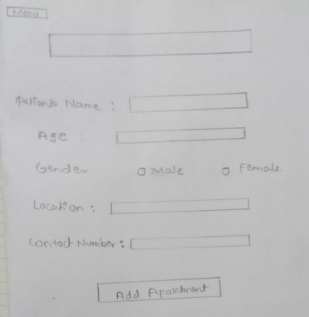 Menu
Patients Name :
Age
Gender Male Female
Location :
Contact Number :
Add Apointment